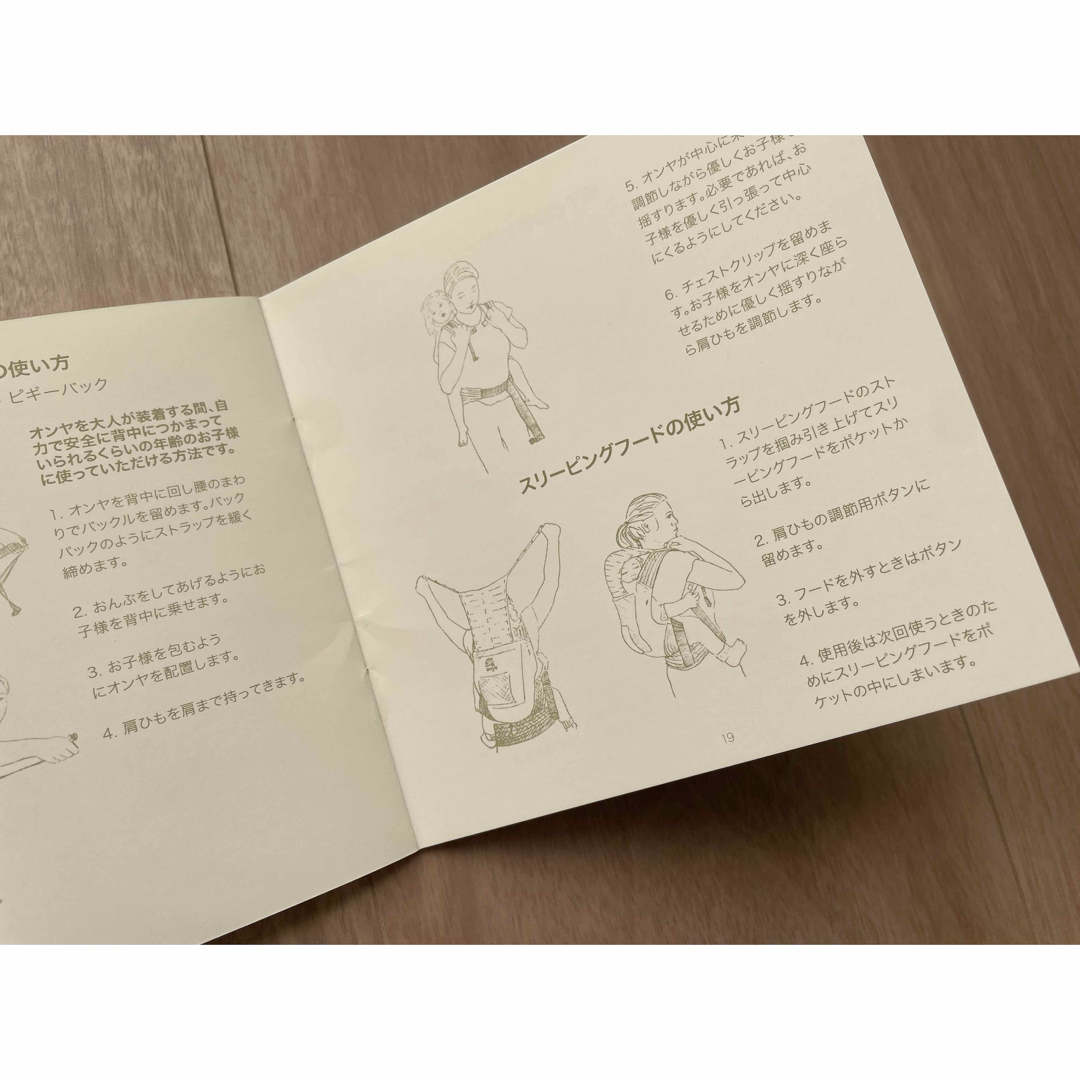 の使い方
ピギーバック
オンヤを大人が装着する間、自
力で安全に背中につかまって
いられるくらいの年齢のお子様
に使っていただける方法です。
1. オンヤを背中に回し腰のまわ
りでバックルを留めます。バック
パックのようにストラップを緩く
締めます。
2. おんぶをしてあげるようにお
子様を背中に乗せます。
3. お子様を包むよう
にオンヤを配置します。
4. 肩ひもを肩まで持ってきます。
5. オンヤが中心に
調節しながら優しくお子様を
揺すります。必要であれば、お
子様を優しく引っ張って中心
にくるようにしてください。
6. チェストクリップを留めま
す。お子様をオンヤに深く座ら
せるために優しく揺すりなが
ら肩ひもを調節します。
スリーピングフードの使い方
1. スリーピングフードのスト
ラップを掴み引き上げてスリ
ーピングフードをポケットか
ら出します。
2. 肩ひもの調節用ボタンに
留めます。
3. フードを外すときはボタン
を外します。
4. 使用後は次回使うときのた
めにスリーピングフードをポ
ケットの中にしまいます。
19